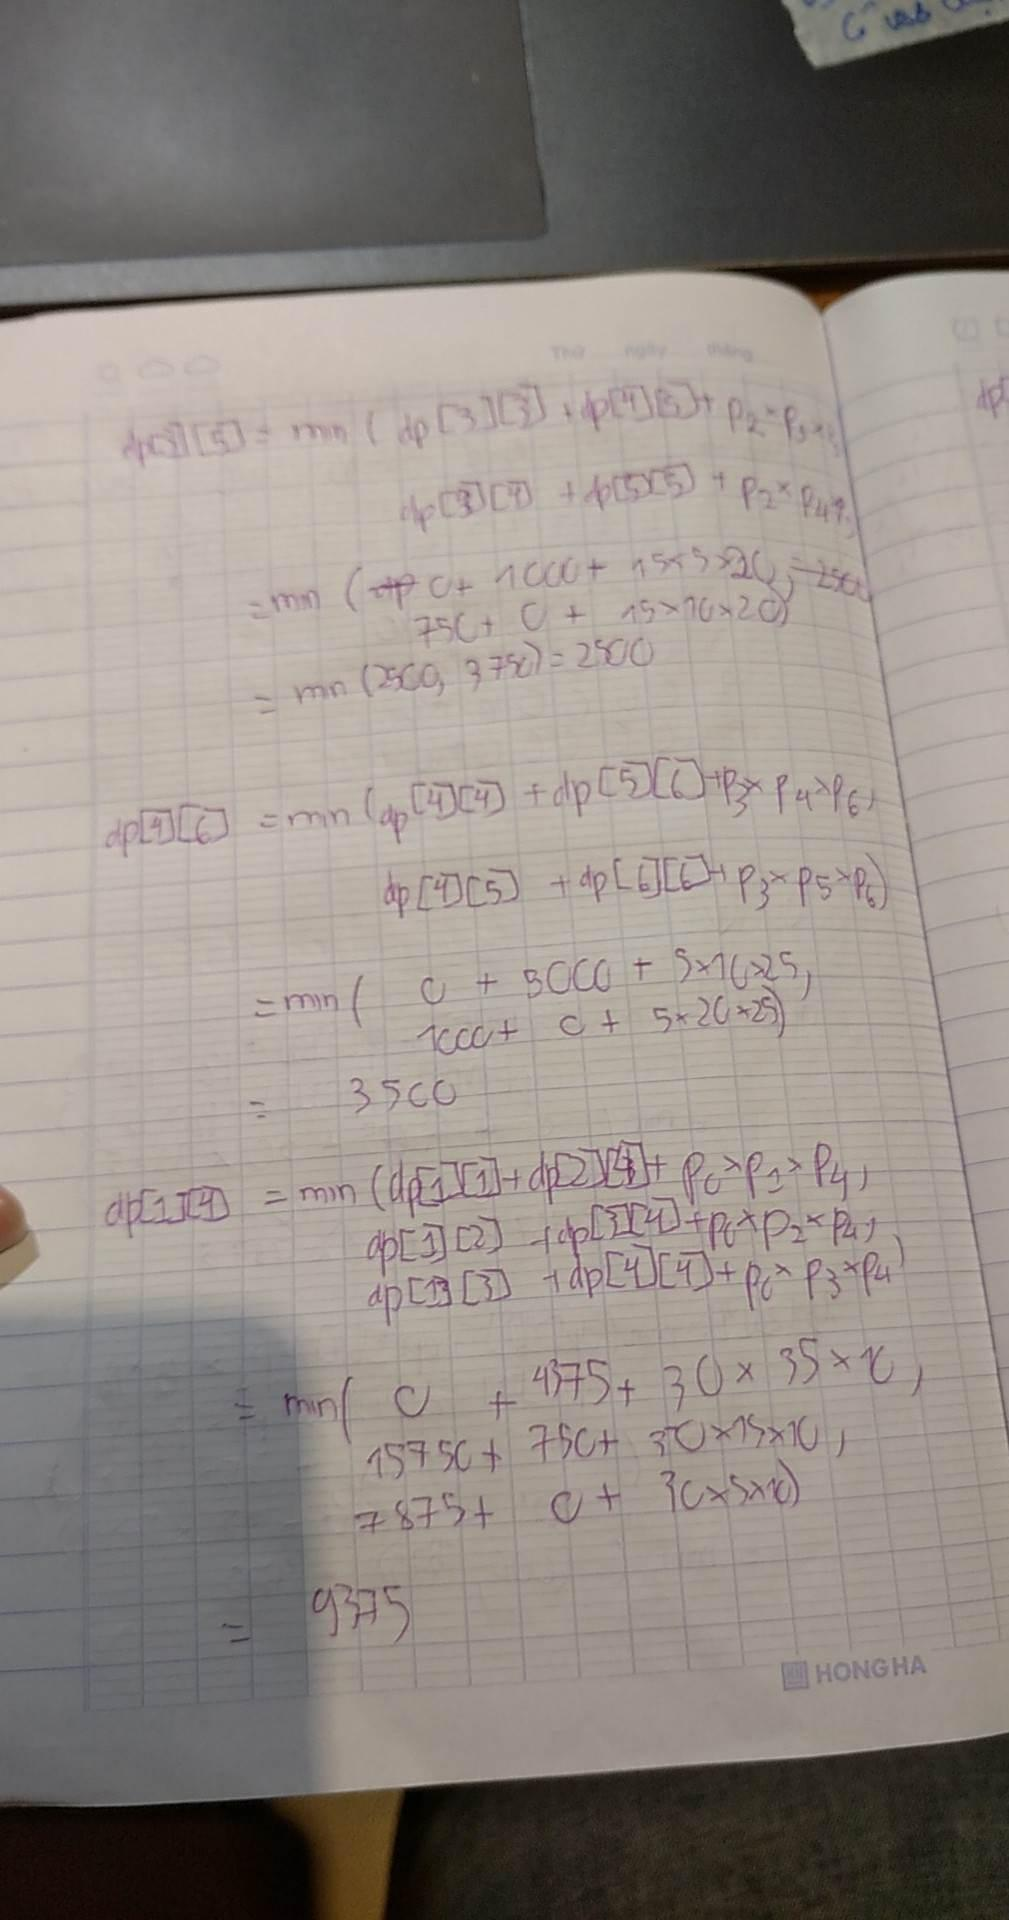 Thứ ngày tháng
dp[3][5] = min ( dp[3][3] + dp[4][5] + P2 × P3 ×
dp[3][4] + dp[5][5] + P2 × P4 ×
= min ( 0 + 1000 + 15×5×20, = 2500
750 + 0 + 15×10×20)
= min (2500, 3750) = 2500
dp[4][6] = min (dp[4][4] + dp[5][6] + P3 × P4 × P6,
dp[4][5] + dp[6][6] + P3 × P5 × P6)
= min ( 0 + 5000 + 5×10×25,
1000 + 0 + 5×20×25)
= 3500
dp[1][4] = min (dp[1][1] + dp[2][4] + P0 × P1 × P4,
dp[1][2] + dp[3][4] + P0 × P2 × P4,
dp[1][3] + dp[4][4] + P0 × P3 × P4)
= min ( 0 + 4375 + 30 × 35 × 10,
15750 + 750 + 30×15×10,
7875 + 0 + 30×5×10)
= 9375
HONG HA
dp[